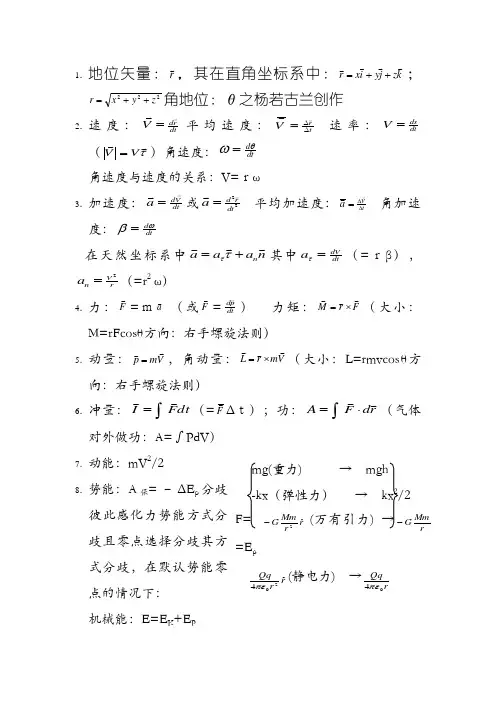 1. 地位矢量：r⃗，其在直角坐标系中：r⃗ = xi⃗ + yj⃗ + zk⃗；
r = √(x² + y² + z²) 角地位：θ之杨若兰创作
2. 速度：V⃗ = dr⃗/dt 平均速度：V̄⃗ = Δr⃗/Δt 速率：V = ds/dt
（|V⃗| = Vτ⃗）角速度：ω = dθ/dt
角速度与速度的关系：V=ｒω
3. 加速度：a⃗ = dV⃗/dt 或 a⃗ = d²r⃗/dt² 平均加速度：ā⃗ = ΔV⃗/Δt 角加速
度：β = dω/dt
在天然坐标系中 a⃗ = a_τ τ⃗ + a_n n⃗ 其中 a_τ = dV/dt（=ｒβ），
a_n = V²/r（=r²ω）
4. 力：F⃗=ｍa⃗ （或F⃗ = dp⃗/dt） 力矩：M⃗ = r⃗ × F⃗（大小：
M=rFcosθ方向：右手螺旋法则）
5. 动量：p⃗ = mV⃗，角动量：L⃗ = r⃗ × mV⃗（大小：L=rmvcosθ方
向：右手螺旋法则）
6. 冲量：I⃗ = ∫F⃗dt（=F⃗Δｔ）；功：A = ∫F⃗ · dr⃗（气体
对外做功：A=∫PdV）
7. 动能：mV²/2
8. 势能：A保= – ΔEp分歧
彼此感化力势能方式分
歧且零点选择分歧其方
式分歧，在默认势能零
点的情况下：
机械能：E=EK+EP
mg(重力) → mgh
-kx（弹性力） → kx²/2
F= −G Mm/r² r̂ (万有引力) → −G Mm/r
=Ep
Qq/4πε₀r² r̂ (静电力) → Qq/4πε₀r